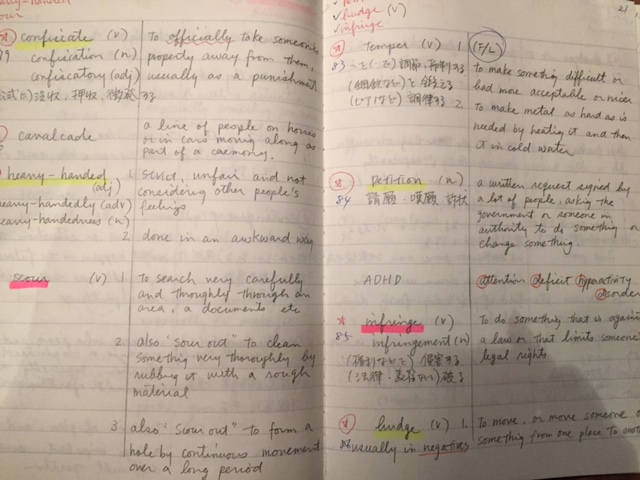 heavy-handed
scour
confiscate (v)
To officially take someone's
89
confiscation (n)
property away from them,
confiscatory (adj)
usually as a punishment
没収, 押収, 徴発する
cavalcade
a line of people on horses
or in cars moving along as
part of a caemony.
heavy-handed
(adj)
1. strict, unfair and not
considering other people's
feelings
heavy-handedly (adv)
heavy-handedness (n)
2 done in an awkward way
scour (v) 1
To search very carefully
and throughly through an
area, a documents etc
2. also "sour out" to clean
something very thoroughly by
rubbing it with a rough
material
3 also "scour out" to form a
hole by continuous movement
over a long period
21
✓ fudge (v)
✓ infringe
temper (v) 1. (F/L)
83
調節, 抑制する
to make something difficult or
bad more acceptable or nicer
(鋼鉄など)を鍛える
(ピアノなど) 調律する 2.
to make metal as hard as is
needed by heating it and then
it in cold water
petition (n)
84
請願・嘆願 訴状
a written request signed by
a lot of people, asking the
government or someone in
authority to do something or
change something.
ADHD
attention deficit hyperactivity
disorder
infringe (v)
85
infringement (n)
To do something that is again
a law or that limits someone's
legal rights
(権利などを) 侵害する
(法律・義務など) 破る
budge (v) 1.
86
usually in negatives
To move, or move someone o
something from one place to anoth